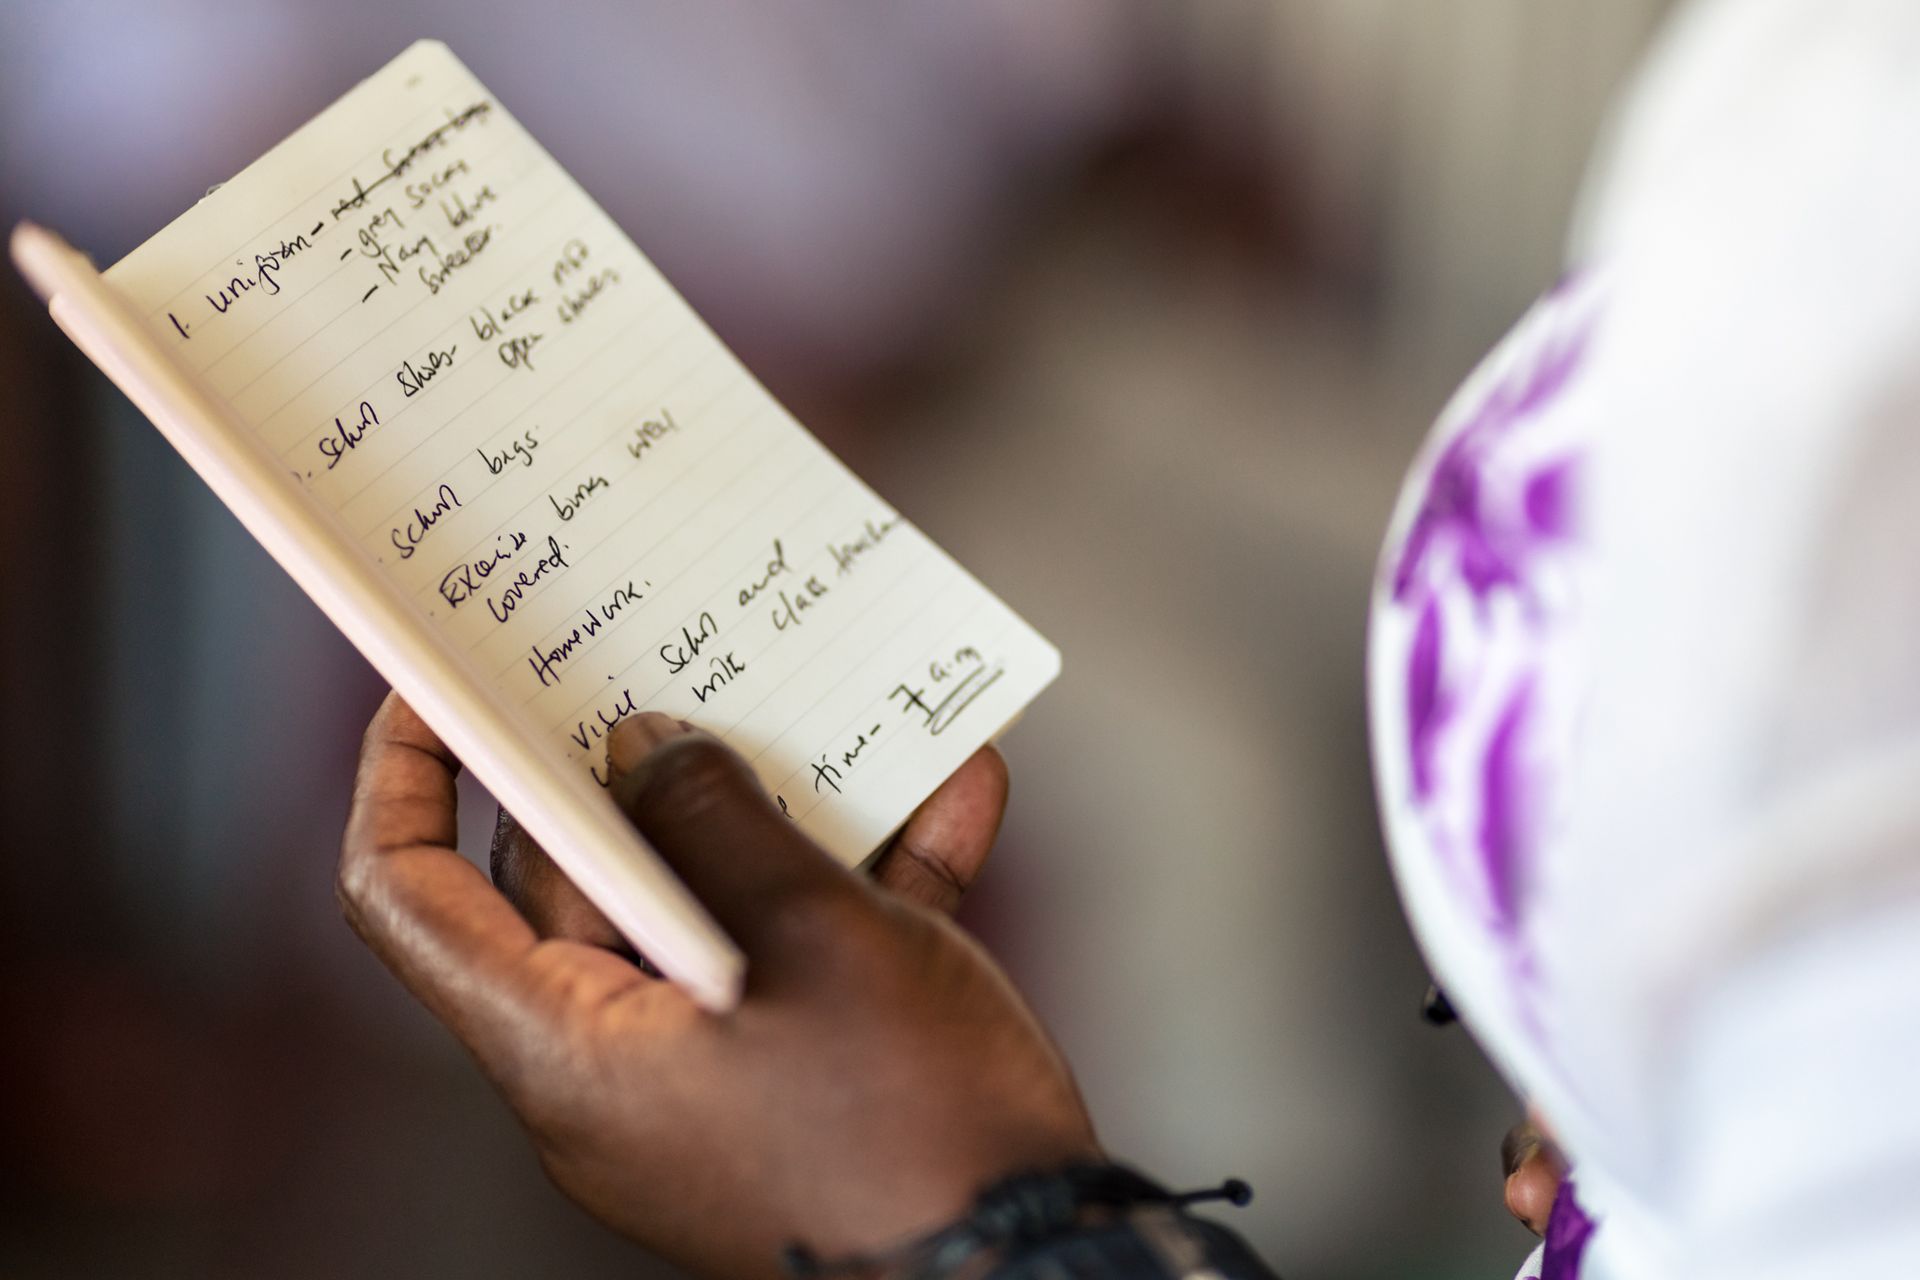 1. uniform - red
- grey socks
- Navy blue
sweater.
school shoes - black not
open shoes
school bags.
Exercise books well
covered.
Homework.
Visit school and
with class teacher
time - 7 a.m